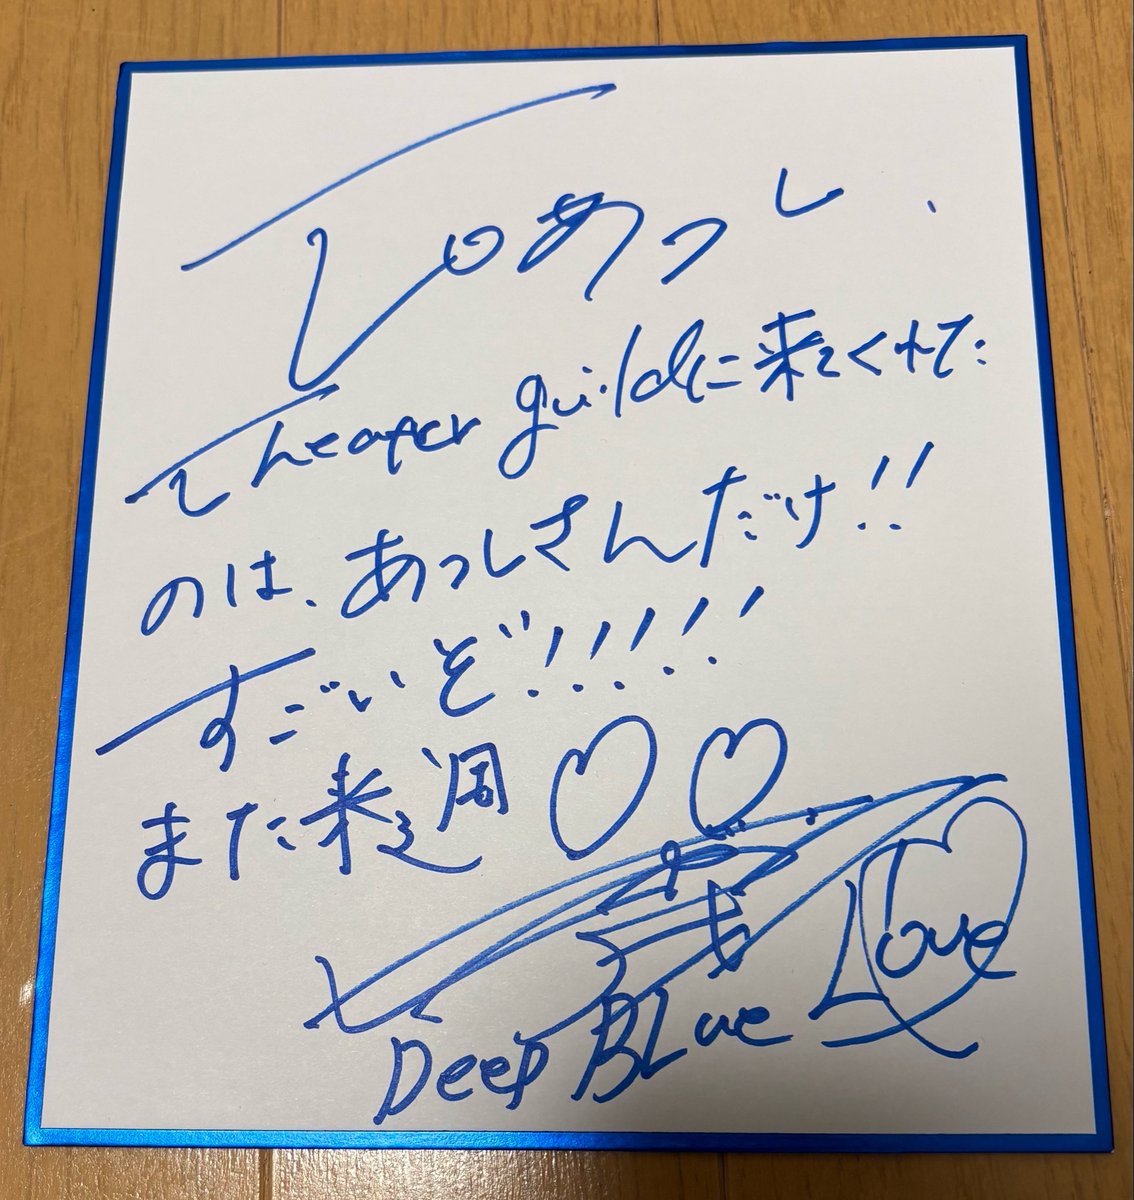 To あっし
Theater guildに来てくれた
のは、あっしさんだけ!!
すごいぞ!!!!!
また来週♡♡
Love
Deep BLue